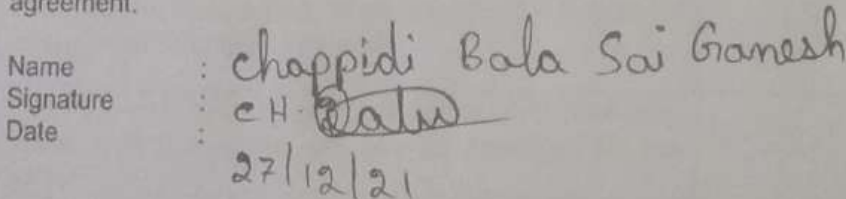 agreement.
Name : Chappidi Bala Sai Ganesh
Signature : CH. Balu
Date :
27/12/21